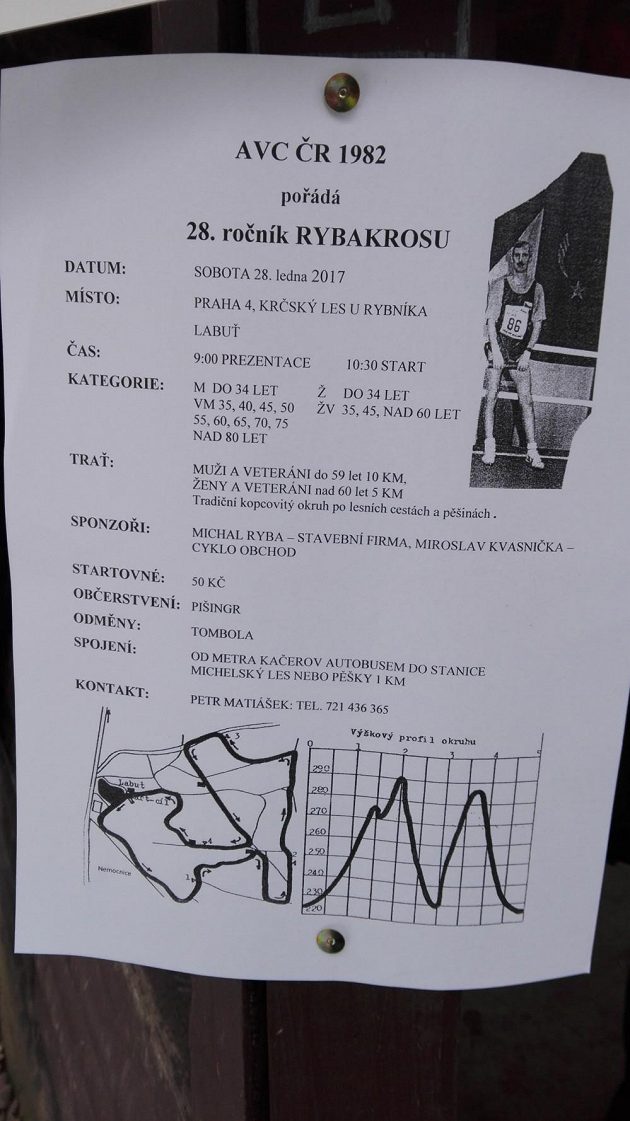 AVC ČR 1982
pořádá
28. ročník RYBAKROSU
DATUM: SOBOTA 28. ledna 2017
MÍSTO: PRAHA 4, KRČSKÝ LES U RYBNÍKA
LABUŤ
ČAS: 9:00 PREZENTACE 10:30 START
KATEGORIE: M DO 34 LET Ž DO 34 LET
VM 35, 40, 45, 50 ŽV 35, 45, NAD 60 LET
55, 60, 65, 70, 75
NAD 80 LET
86
TRAŤ: MUŽI A VETERÁNI do 59 let 10 KM,
ŽENY A VETERÁNI nad 60 let 5 KM
Tradiční kopcovitý okruh po lesních cestách a pěšinách.
SPONZOŘI: MICHAL RYBA – STAVEBNÍ FIRMA, MIROSLAV KVASNIČKA –
CYKLO OBCHOD
STARTOVNÉ: 50 KČ
OBČERSTVENÍ: PIŠINGR
ODMĚNY: TOMBOLA
SPOJENÍ: OD METRA KAČEROV AUTOBUSEM DO STANICE
MICHELSKÝ LES NEBO PĚŠKY 1 KM
KONTAKT: PETR MATIÁŠEK: TEL. 721 436 365
Labuť
Nemocnice
1
2
3
4
Výškový profil okruhu
0 1 2 3 4 5
290
280
270
260
250
240
230
220